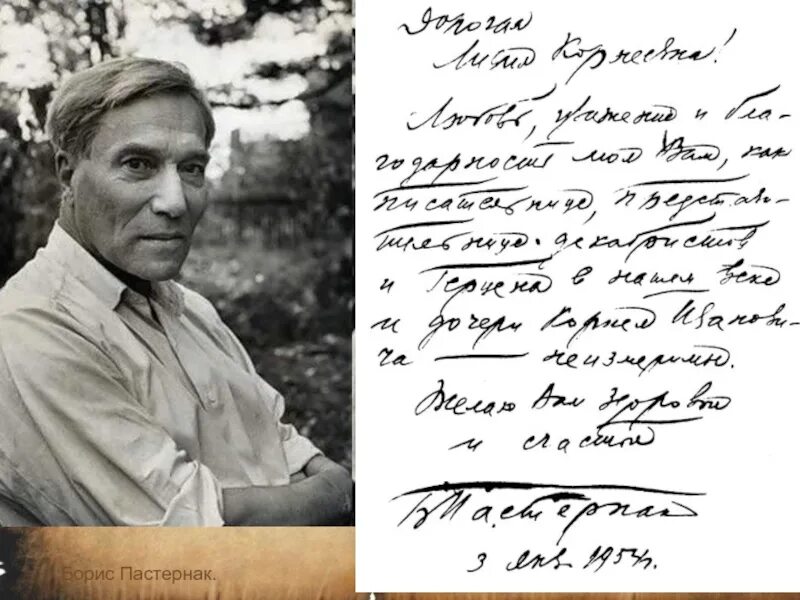 Дорогая
Лидия Корнеевна!
Любовь, уважение и бла-
годарность моя Вам, как
писательнице, представи-
тельнице декабристов
и Герцена в нашем веке
и дочери Корнея Иванови-
ча — неизмеримы.
Желаю Вам здоровья
и счастья
Б Пастернак
3 янв 1954 г.
Борис Пастернак.